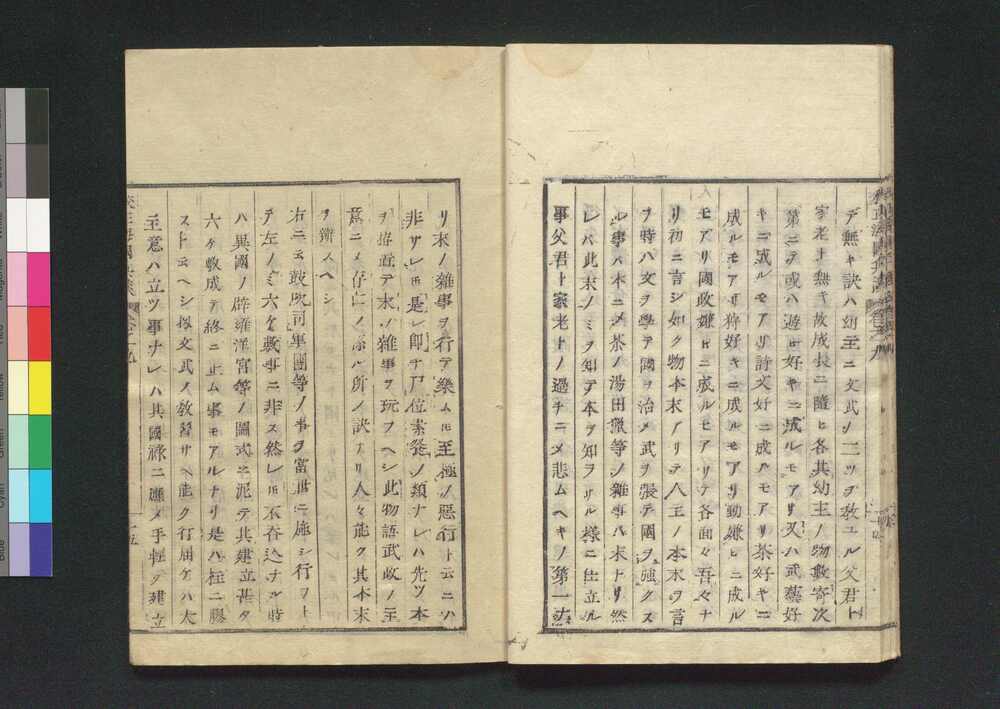 デ無キ訣ハ幼主ニ文武ノ二ツヲ教エル父君ト
家老ト無キ故成長ニ隨ヒ各其幼主ノ物數寄次
第ニテ或ハ遊山好キニ成ルモアリ又ハ武藝好
キニ成ルモアリ詩文好ニ成ルモアリ茶好キニ
成ルモアリ狩好キニ成ルモアリ動嫌ヒニ成ル
モアリ國政嫌ヒニ成ルモアリテ各面々吾々ナ
リ初ニ言シ如ク物本末アリテ人主ノ本末ヲ言
ヲ時ハ文ヲ學テ國ヲ治メ武ヲ張テ國ヲ強クス
ル事ハ本ニメ茶ノ湯田獵等ノ雜事ハ末ナリ然
レバ此末ノミヲ知テ本ヲ知ヲリル様ニ仕立ル
事父君ト家老トノ過チニメ悲ムヘキノ第一也
リ末ノ雜事ヲ行テ樂ムハ至極ノ惡行ト云ニハ
非サレ𪜈是レ即チ尸位素餐ノ類ナレハ先ツ本
ヲ務テ末ノ雜事ヲ玩フヘシ此物語武政ノ至
ヲ辨スヘシ
右ニ云鼓
テ左ノミ六ケ敷事ニ非ス然レ𪜈不呑込ナル時
ハ異國ノ辟雍泮宮等ノ圖式ニ泥テ其建立甚タ
六ケ敷成テ終ニ止ム事モアルナリ是ハ柱ニ膠
ストモ云ヘシ扨文武ノ教習サヘ能ク行届ケハ大
主意ハ立ツ事ナレハ其國祿ニ應メ手輕ク建立